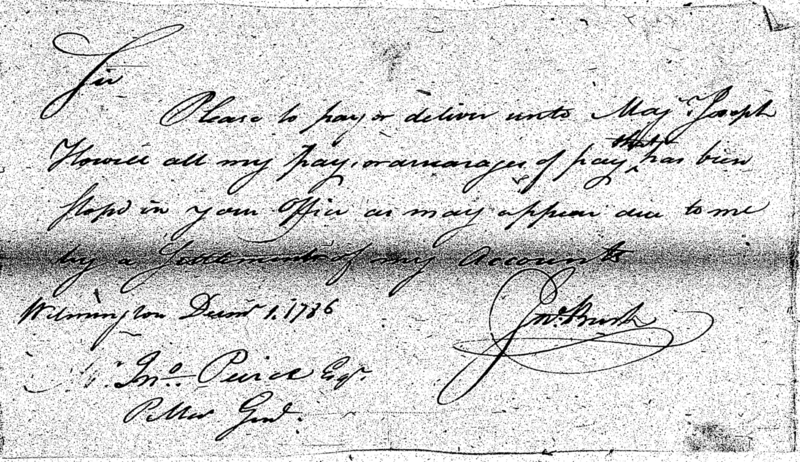 Sir
Please to pay or deliver unto Majr. Joseph
Howell all my pay, or arrearages of pay that has been
stopd in your Office as may appear due to me
by a Settlement of my Accounts
Wilmington Decmr. 1. 1786
Jno. Bush
Jno. Peirce Esqr.
P. Mr. Genl.